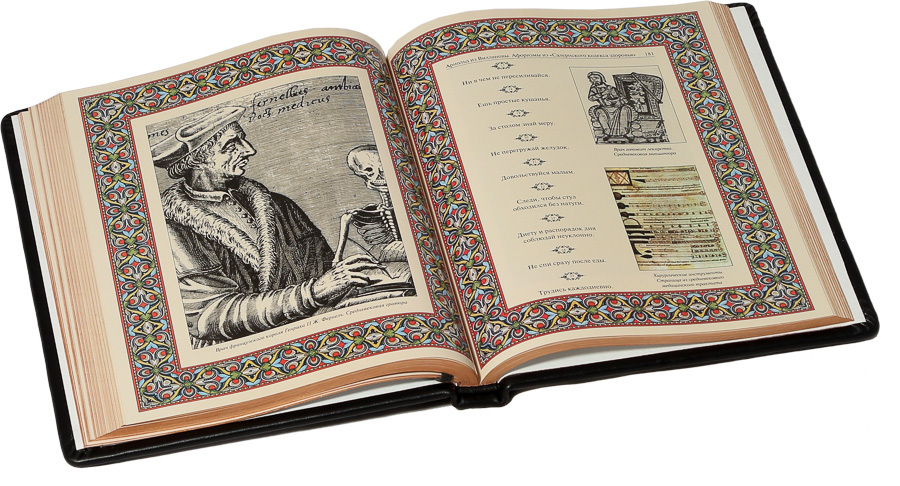 fernelius ambia
Doct medicus
mes
Врач французского короля Генриха II Ж. Фернель. Средневековая гравюра
Арнольд из Виллановы. Афоризмы из «Салернского кодекса здоровья» 181
Ни в чем не пересиливайся.
Ешь простые кушанья.
За столом знай меру.
Не перегружай желудок.
Довольствуйся малым.
Следи, чтобы стул
обходился без натуги.
Диету и распорядок дня
соблюдай неуклонно.
Не спи сразу после еды.
Трудись каждодневно.
Врач готовит лекарство.
Средневековая миниатюра
Хирургические инструменты.
Страница из средневекового
медицинского трактата